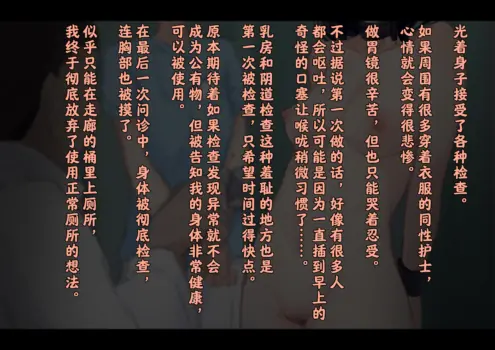 光着身子接受了各种检查。
如果周围有很多穿着衣服的同性护士，
心情就会变得很悲惨。
做胃镜很辛苦，但也只能哭着忍受。
不过据说第一次做的话，好像有很多人
都会呕吐，所以可能是因为一直插到早上的
奇怪的口塞让喉咙稍微习惯了……。
乳房和阴道检查这种羞耻的地方也是
第一次被检查，只希望时间过得快点。
原本期待着如果检查发现异常就不会
成为公有物，但被告知我的身体非常健康，
可以被使用。
在最后一次问诊中，身体被彻底检查，
连胸部也被摸了。
似乎只能在走廊的桶里上厕所，
我终于彻底放弃了使用正常厕所的想法。